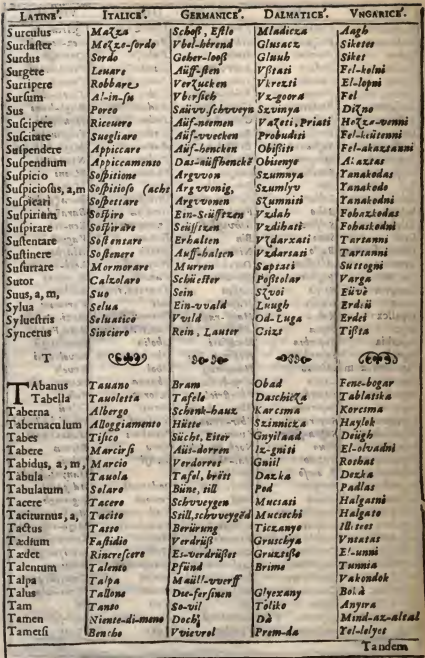 LATINE. ITALICE. GERMANICE. DALMATICE. VNGARICE.
Surculus Mazza Schoß, Eſtlo Mladicza Aagh
Surdaſter Mezzo-ſordo Vbel-hörend Gluſacz Siketes
Surdus Sordo Geher-looß Gluuh Siket
Surgere Leuare Aüff-ſten Vſtati Fel-kelni
Surripere Robbare Verzucken Vkrezti El-lopni
Surſum Al-in-ſu Vbirſich Vz-goora Fel
Sus Porco Saüvv, ſchvveyn Szvinya Dizno
Suſcipere Riceuere Aüf-nemen Vazeti, Priati Hozza-venni
Suſcitare Suegliare Auf-vvecken Probuditi Fel-keütenni
Suſpendere Appiccare Auf-hencken Obiſiti Fel-akaztanni
Suſpendium Appiccamento Das-aüffhenckē Obiſenye Akaztas
Suſpicio Soſpitione Argvvon Szumnya Yanakodas
Suſpicioſus, a, m Soſpitioſo (acht Argvvonig, Szumlyv Yanakodo
Suſpicari Soſpettare Argvvonen Szumniti Yanakodni
Suſpirium Soſpiro Ein-Seüfftzen Vzdah Fohazkodas
Suſpirare Soſpirare Seüfftzen Vzdihati Fohaſkodni
Suſtentare Soſtentare Erhalten Vzdarxati Tartanni
Suſtinere Soſtenere Auff-halten Vzdarſati Tartanni
Suſurrare Mormorare Murren Sapſati Suttogni
Sutor Calzolaro Schüeſter Poſtolar Varga
Suus, a, m, Suo Sein Szvoi Eüve
Sylua Selua Ein-vvald Luugh Erdeü
Sylueſtris Seluatico Vvild Od-Luga Erdei
Syncerus Sinciero Rein, Lauter Csizt Tißta
T
TAbanus Tauano Bram Obad Fene-bogar
Tabella Tauoletta Tafele Daschicza Tablatska
Taberna Albergo Schenk-hauz Karcsma Korcsma
Tabernaculum Alloggiamento Hütte Szinnicza Haylok
Tabes Tiſico Sücht, Eiter Gnyilaad Deügh
Tabere Marcirſi Aüs-dorren Iz-gniti El-olvadni
Tabidus, a, m, Marcio Verdorret Gniil Rothat
Tabula Tauola Tafel, brëtt Dazka Dezka
Tabulatum Solaro Büne, till Pod Padlas
Tacere Tacere Schvveygen Mucsati Halgatni
Taciturnus, a, Tacito Still, ſchvveygēd Mucsechi Halgato
Tactus Tatto Berürung Ticzanye Illetees
Tædium Faſtidio Verdrüß Gruschya Vntatas
Tædet Rincreſcere Es-verdrüßet Gruztiſſe El-unni
Talentum Talento Pfünd Brime Tunnia
Talpa Talpa Maüll-vverff Vakondok
Talus Tallone Die-ferſinen Glyezany Boka
Tam Tanto So-vil Toliko Anyira
Tamen Niente-di-meno Doch Dà Mind-az-altal
Tametſi Benche Vvievvol Prem-da Yel-lelyet
Tandem